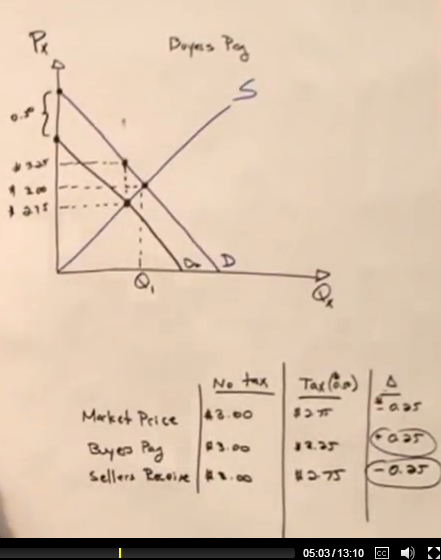 Px
Buyers Pay
S
0.50
$3.25
$3.00
$2.75
D
Q1
Qx
No tax
Tax ($0.50)
Δ
Market Price $3.00 $2.75 - 0.25
Buyers Pay $3.00 $3.25 + 0.25
Sellers Receive $3.00 $2.75 - 0.25
05:03 / 13:10
CC